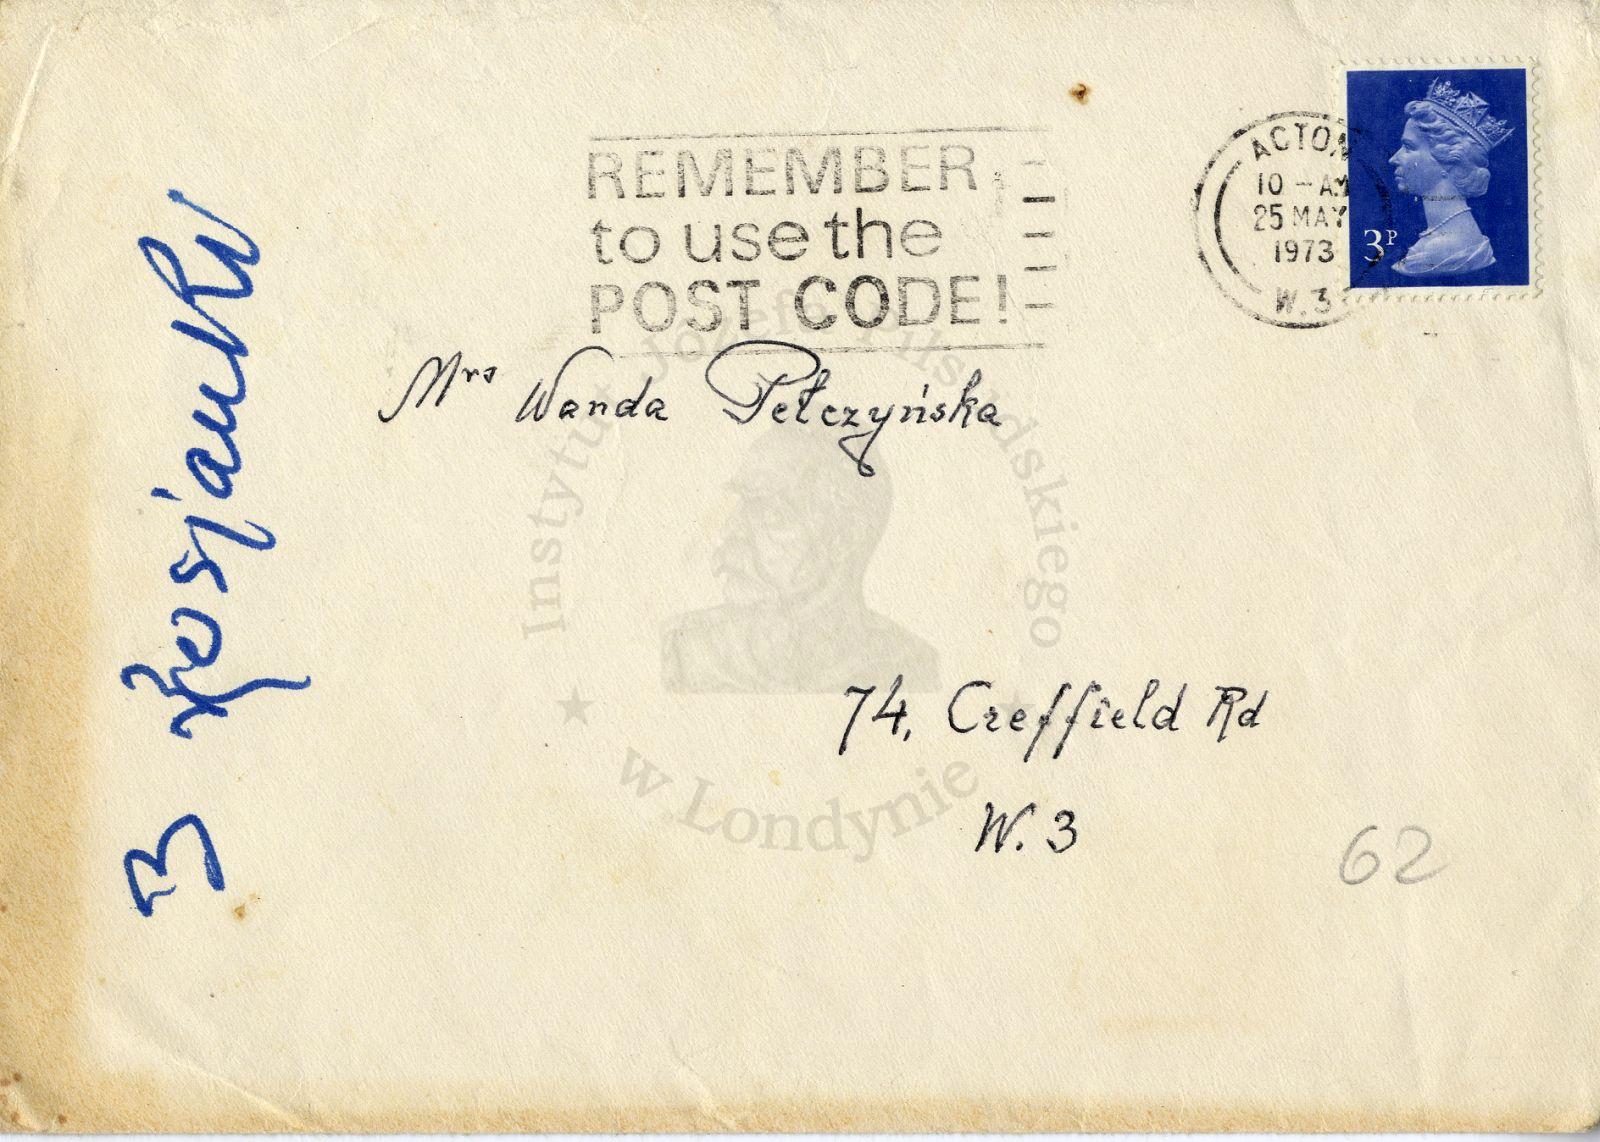 REMEMBER
to use the
POST CODE!
ACTON
10 - AM
25 MAY
1973
W. 3
3P
Mrs Wanda Pełczyńska
74, Creffield Rd
W. 3
62
Instytut Józefa Piłsudskiego
w Londynie